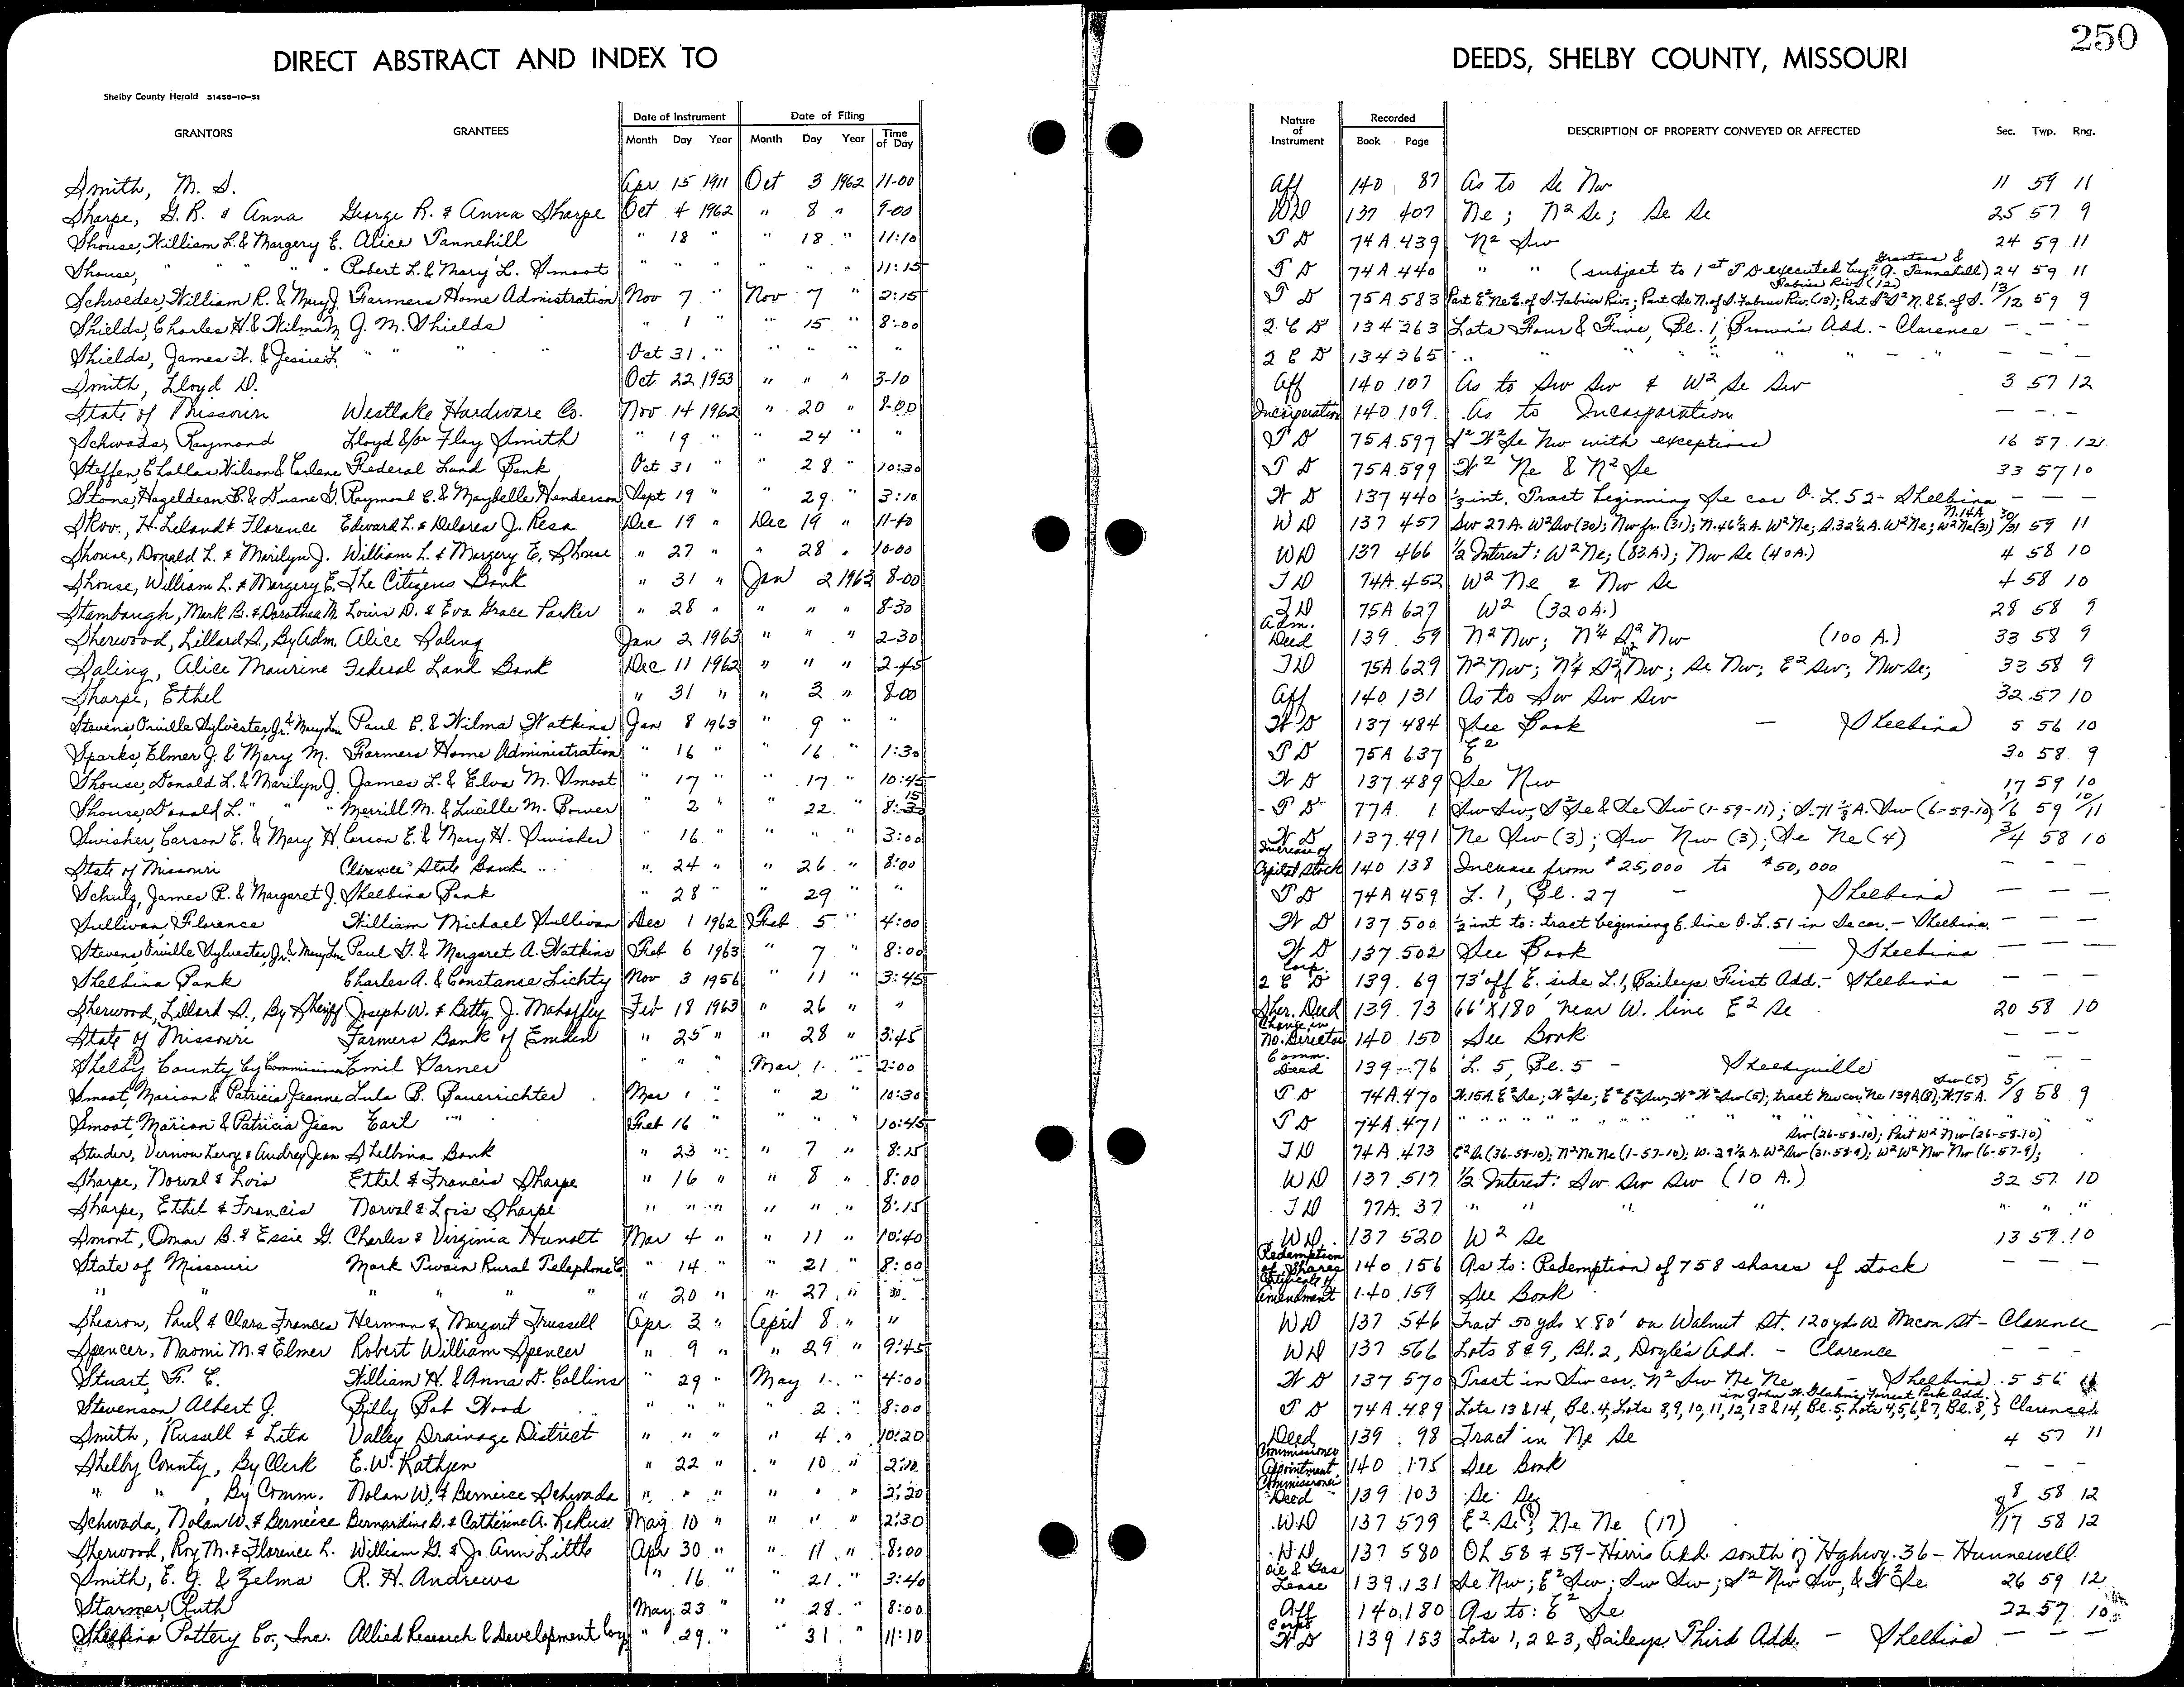 250
DIRECT ABSTRACT AND INDEX TO DEEDS, SHELBY COUNTY, MISSOURI
Shelby County Herald 51458-10-51
GRANTORS GRANTEES Date of Instrument Month Day Year Date of Filing Month Day Year Time of Day Nature of Instrument Recorded Book Page DESCRIPTION OF PROPERTY CONVEYED OR AFFECTED Sec. Twp. Rng.
Smith, M. S. Apr 15 1911 Oct 3 1962 11-00 Aff 140 87 As to Se Nw 11 59 11
Sharpe, G. R. & Anna George R. & Anna Sharpe Oct 4 1962 " 8 " 9-00 WD 137 407 Ne; N2 Se; Se Se 25 57 9
Shouse, William L. & Margery E. Alice Tannehill " 18 " " 18 " 11:10 T D 74A 439 N2 Sw 24 59 11
Shouse, " " " " Robert L. & Mary L. Smoot " " " " " " 11:15 T D 74A 440 " " (subject to 1st T D executed by Grantors & A. Tannehill) 24 59 11
Schroeder, William R. & Mary J. Farmers Home Administration Nov 7 " Nov 7 " 2:15 T D 75A 583 Part E2 Ne E. of S. Fabius Riv.; Part Se N. of S. Fabius Riv. (13); Part S2 S2 N. & E. of S. Fabius River (12) 13/12 59 9
Shields, Charles H. & Wilma M. J. M. Shields " 1 " " 15 " 8:00 Q C D 134 263 Lots Four & Five, Bl. 1, Brown's Add. - Clarence - - -
Shields, James W. & Jessie L. " " " Oct 31 " " " " " Q C D 134 265 " " " " " " " - " - - -
Smith, Lloyd D. Oct 22 1953 " " " 3-10 Aff 140 107 As to Sw Sw & W2 Se Sw 3 57 12
State of Missouri Westlake Hardware Co. Nov 14 1962 " 20 " 8-00 Incorporation 140 109 As to Incorporation - - -
Schwada, Raymond Lloyd &/or Floy Smith " 19 " " 24 " " T D 75A 597 S2 W2 Se Nw with exceptions 16 57 12
Steffen, Challas Wilson & Earlene Federal Land Bank Oct 31 " " 28 " 10:30 T D 75A 599 W2 Ne & N2 Se 33 57 10
Stone, Hazeldean B. & Duane G. Raymond C. & Maybelle Henderson Sept 19 " " 29 " 3:10 W D 137 440 1/3 int. Tract beginning Se cor O. L. 52 - Shelbina - - -
Skov, H. Leland & Florence Edward L. & Delores J. Resa Dec 19 " Dec 19 " 11-40 WD 137 457 Sw 27 A. W2 Sw (30); Nw fr. (31); N. 46 1/2 A. W2 Ne; S. 32 1/2 A. W2 Ne; N. 14A. W2 Ne (31) 30/31 59 11
Shouse, Donald L. & Marilyn J. William L. & Margery E. Shouse " 27 " " 28 " 10-00 WD 137 466 1/2 Interest: W2 Ne; (83 A.); Nw Se (40 A.) 4 58 10
Shouse, William L. & Margery E. The Citizens Bank " 31 " Jan 2 1963 8-00 TD 74A 452 W2 Ne & Nw Se 4 58 10
Stambaugh, Mark B. & Dorothea M. Louis D. & Eva Grace Parker " 28 " " " " 8-30 TD 75A 627 W2 (320 A.) 28 58 9
Sherwood, Lillard S., By Adm. Alice Saling Jan 2 1963 " " " 2-30 Adm. Deed 139 59 N2 Nw; N1/4 S2 Nw (100 A.) 33 58 9
Saling, Alice Maurine Federal Land Bank Dec 11 1962 " " " 2-45 TD 75A 629 N2 Nw; N1/4 S2 Nw; Se Nw; E2 Sw; Nw Se; 33 58 9
Sharpe, Ethel " 31 " " 3 " 8-00 Aff 140 131 As to Sw Sw Sw 32 57 10
Stevens, Orville Sylvester, Jr. & Mary Lou Paul E. & Wilma Watkins Jan 8 1963 " 9 " " W D 137 484 See Book - Shelbina 5 56 10
Sparks, Elmer J. & Mary M. Farmers Home Administration " 16 " " 16 " 1:30 T D 75A 637 E2 30 58 9
Shouse, Donald L. & Marilyn J. James L. & Elva M. Smoot " 17 " " 17 " 10:45 W D 137 489 Se Nw 17 59 10
Shouse, Donald L. " " " Merrill M. & Lucille M. Bower " 2 " " 22 " 8:15 T D 77A 1 Sw Sw, S2 Se & Se Sw (1-59-11); S-71 1/2 A. Sw (6-59-10) 1/6 59 10/11
Swisher, Carson E. & Mary H. Carson E. & Mary H. Swisher " 16 " " " " 3:00 W D 137 491 Ne Sw (3); Sw Nw (3); Se Ne (4) 3/4 58 10
State of Missouri Clarence State Bank " 24 " " 26 " 8:00 Increase of Capital Stock 140 138 Increase from $25,000 to $50,000 - - -
Schulz, James R. & Margaret J. Shelbina Bank " 28 " " 29 " T D 74A 459 L. 1, Bl. 27 - Shelbina - - -
Sullivan, Florence William Michael Sullivan Dec 1 1962 Feb 5 " 4:00 W D 137 500 1/2 int to: tract beginning E. line O. L. 51 in Se cor. - Shelbina - - -
Stevens, Orville Sylvester, Jr. & Mary Lou Paul G. & Margaret A. Watkins Feb 6 1963 " 7 " 8:00 W D 137 502 See Book - Shelbina - - -
Shelbina Bank Charles A. & Constance Lichty Nov 3 1956 " 11 " 3:45 Corp. Q C D 139 69 73' off E. side L. 1, Baileys First Add. - Shelbina - - -
Sherwood, Lillard S., By Sheriff Joseph W. & Betty J. Mahaffey Feb 18 1963 " 26 " " Sher. Deed 139 73 66' X 180' near W. line E2 Se 20 58 10
State of Missouri Farmers Bank of Emden " 25 " " 28 " 3:45 Change in No. Director 140 150 See Book - - -
Shelby County by Commissioner Emil Garner " " " Mar 1 " 2:00 Comm. Deed 139 76 L. 5, Bl. 5 - Shelbyville - - -
Smoot, Marion & Patricia Jeanne Lula B. Bauerrichter Mar 1 " " 2 " 10:30 T D 74A 470 W. 15A. E2 Se; W2 Se; E2 E2 Sw, W2 W2 Sw (5); tract Nw cor. Ne 139A (8); W. 75 A. Sw (5) 5/8 58 9
Smoot, Marion & Patricia Jean Earl " " Feb 16 " " " " 10:45 T D 74A 471 " " " " " " " "
Studer, Vernon Leroy & Audrey Jean Shelbina Bank " 23 " " 7 " 8:15 TD 74A 473 E2 Se (36-58-10); N2 Ne Ne (1-57-10); W. 29 1/2 A. W2 Sw (31-58-9); W2 W2 Nw Nw (6-57-9); Sw (26-58-10); Part W2 Nw (26-58-10)
Sharpe, Norval & Lois Ethel & Francis Sharpe " 16 " " 8 " 8:00 WD 137 517 1/2 Interest: Sw Sw Sw (10 A.) 32 57 10
Sharpe, Ethel & Francis Norval & Lois Sharpe " " " " " " 8:15 TD 77A 37 " " " " " " "
Smont, Omar B. & Essie G. Charles & Virginia Hunolt Mar 4 " " 11 " 10:40 WD 137 520 W2 Se 13 59 10
State of Missouri Mark Twain Rural Telephone Co. " 14 " " 21 " 8:00 Redemption of Shares 140 156 As to: Redemption of 758 shares of stock - - -
" " " " " " " 20 " " 27 " 30 Certificate of Amendment 140 159 See Book
Shearon, Paul & Clara Frances Herman & Margaret Trussell Apr 3 " April 8 " " WD 137 546 Tract 50 yds X 80' on Walnut St. 120 yds W. Macon St - Clarence
Spencer, Naomi M. & Elmer Robert William Spencer " 9 " " 29 " 9:45 WD 137 566 Lots 8 & 9, Bl. 2, Doyle's Add. - Clarence - - -
Stuart, F. C. William H. & Anna D. Collins " 29 " May 1 " 4:00 W D 137 570 Tract in Sw cor. N2 Sw Ne Ne - Shelbina 5 56
Stevenson Albert J. Billy Bob Wood " " " " 2 " 8:00 T D 74A 489 Lots 13 & 14, Bl. 4, Lots 8, 9, 10, 11, 12, 13 & 14, Bl. 5, Lots 4, 5, 6 & 7, Bl. 8, in John W. Glahn's Forrest Park Add. } Clarence
Smith, Russell & Leta Valley Drainage District " " " " 4 " 10:20 Deed 139 98 Tract in Ne Se 4 57 11
Shelby County, By Clerk E. W. Rathjen " 22 " " 10 " 2:10 Commissioner Apointment 140 175 See Book - - -
" " , By Comm. Nolan W. & Berneice Schwada " " " " " " 2:20 Commissioner Deed 139 103 Se Se 8 58 12
Schwada, Nolan W. & Berneice Bernardine B. & Catherine A. Kekus May 10 " " " " 2:30 WD 137 579 E2 Se (8); Ne Ne (17) 8/17 58 12
Sherwood, Roy M. & Florence L. William G. & Jo Ann Little Apr 30 " " 11 " 8:00 WD 137 580 OL 58 & 59 - Harris Add. south of Highwy. 36 - Hunnewell
Smith, E. G. & Zelma R. H. Andrews " 16 " " 21 " 3:40 Oil & Gas Lease 139 131 Se Nw; E2 Sw; Sw Sw; S2 Nw Sw, & W2 Se 26 59 12
Starmer, Ruth May 23 " " 28 " 8:00 Aff 140 180 As to: E2 Se 22 57 10
Shelbina Pottery Co., Inc. Allied Research & Development Corp " 29 " " 31 11:10 Corp. W D 139 153 Lots 1, 2 & 3, Baileys Third Add. - Shelbina - - -